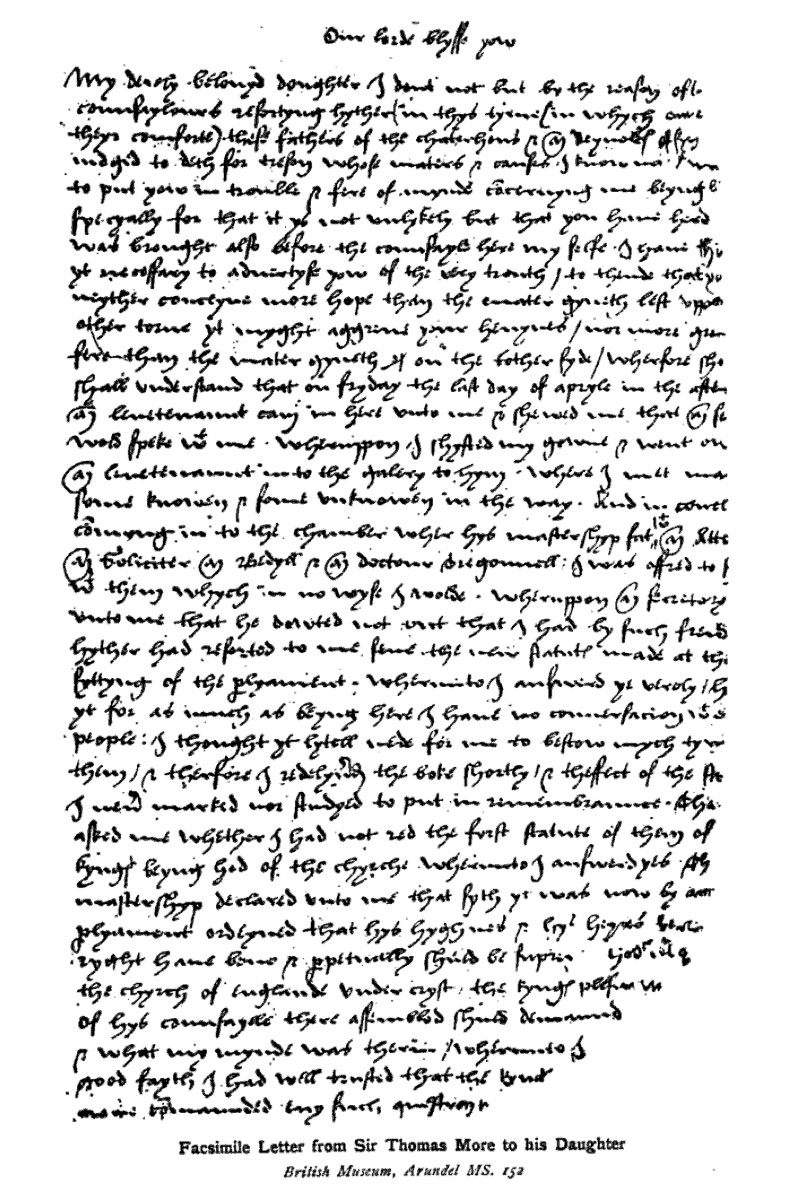 Our lorde blysse yow
My derely belovyd doughter I dout not but by the reason of
counsaylours resortyng hyther in thys tyme in whych
theyr comforte) these fathers of the chaterhous & Reynolds of Syon
iudged to deth for treson whose maters & causes I know not
to put yow in trouble & fere of mynde concernyng me beyng
specyally for that it ys not unlykely but that you have herd
was brought also before the counsayle here my selfe I have
yt necessary to advertyse yow of the very trouth / to thende that
neyther conceyve more hope than the mater gyveth lest uppon
other torne yt myght aggreve your hevynes / nor more
fere than the mater gyveth of on the tother syde / wherfore
shall understand that on fryday the last day of apryle in the
levetenaunt cam in here unto me & shewed me that
wold speke wt me . wheruppon I shyfted my gowne & went
levetenaunt into the galery to hym . where I met
some knowen & some unknowen in the way . And in
commyng in to the chamber wher hys mastershyp sat wt
Soliciter Bedyll & doctour Tregonnell : I was offred to
wt them whych in no wyse I wolde . wheruppon secretory
unto me that he dowted not but that I had by such
hyther had resorted to me sene the new statutes made at
syttyng of the plyament . wherunto I answerd ye verely /
yt for as much as beyng here I have no conversacion wt
people : I thought yt lytell nede for me to bestow mych
them / & therfore I redelyverd the boke shortly / & theffect of the
I never marked nor studyed to put in remembraunce .
asked me whether I had not red the first statute of them of
kyngs beyng hed of the chyrche wherunto I answerd yes
mastershyp declared unto me that syth yt was now by
plyament ordeyned that hys hyghnes & hys heyres
ryght have bene & ppetually shuld be
the church of englande under cryst . the kyngs
of hys counsayle there assembled shuld demaund
& what my mynde was therin / wherunto I
good fayth I had well trusted that the
commaunded eny such
Facsimile Letter from Sir Thomas More to his Daughter
British Museum, Arundel MS. 152